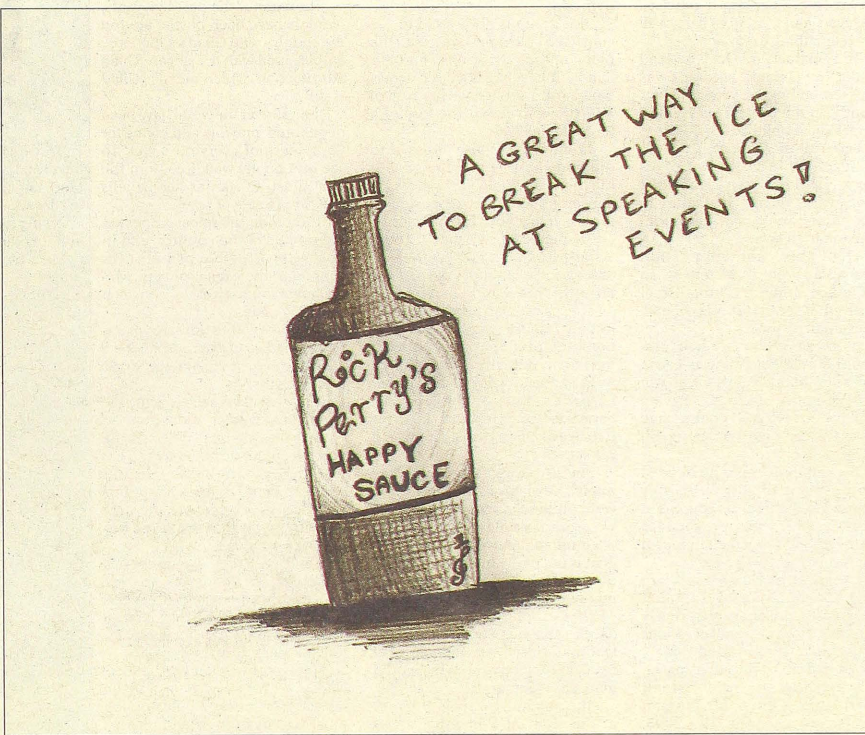 A GREAT WAY
TO BREAK THE ICE
AT SPEAKING
EVENTS!
Rick
Perry's
HAPPY
SAUCE